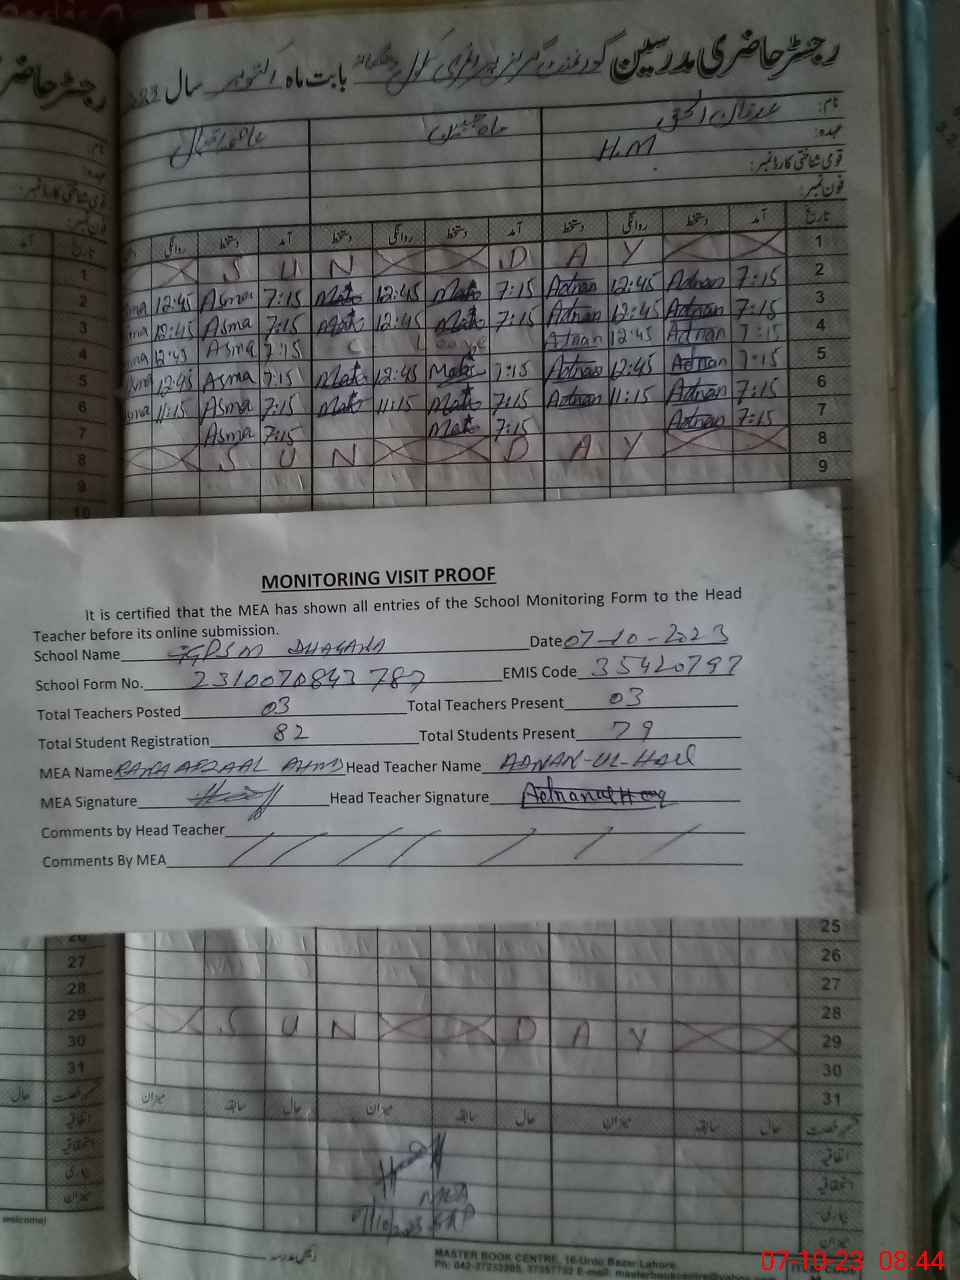 رجسٹر حاضری مدرسین گورنمنٹ گرلز پرائمری سکول بابت ماہ اکتوبر سال
نام: عدنان الحق
عہدہ: H.M
قومی شناختی کارڈ نمبر:
فون نمبر:
تاریخ آمد دستخط روانگی دستخط آمد دستخط روانگی دستخط آمد دستخط روانگی
1 S U N D A Y
2 7:15 Adnan 12:45 Adnan 7:15 12:45 7:15 Asma 12:45
3 7:15 Adnan 12:45 Adnan 7:15 12:45 7:15 Asma 12:45
4 7:15 Adnan 12:45 Adnan C Leave 7:15 Asma 12:45
5 7:15 Adnan 12:45 Adnan 7:15 12:45 7:15 Asma 12:45
6 7:15 Adnan 11:15 Adnan 7:15 11:15 7:15 Asma 11:15
7 7:15 Adnan 7:15 7:15 Asma
8 S U N D A Y
9
MONITORING VISIT PROOF
It is certified that the MEA has shown all entries of the School Monitoring Form to the Head
Teacher before its online submission.
School Name GGPSM DHAGANA Date 07-10-2023
School Form No. 2310070843787 EMIS Code 35420797
Total Teachers Posted 03 Total Teachers Present 03
Total Student Registration 82 Total Students Present 79
MEA Name RANA AFZAAL AHMD Head Teacher Name ADNAN-UL-HAQ
MEA Signature Head Teacher Signature Adnan ul Haq
Comments by Head Teacher
Comments By MEA
25
26
27
28
29 S U N D A Y
30
31
حال سابقہ میزان حال سابقہ میزان حال سابقہ میزان
اتفاقیہ
استحقاقیہ
بیماری
میزان
MEA
7/10/2023
MASTER BOOK CENTRE, 16-Urdu Bazar Lahore.
07-10-23 08:44